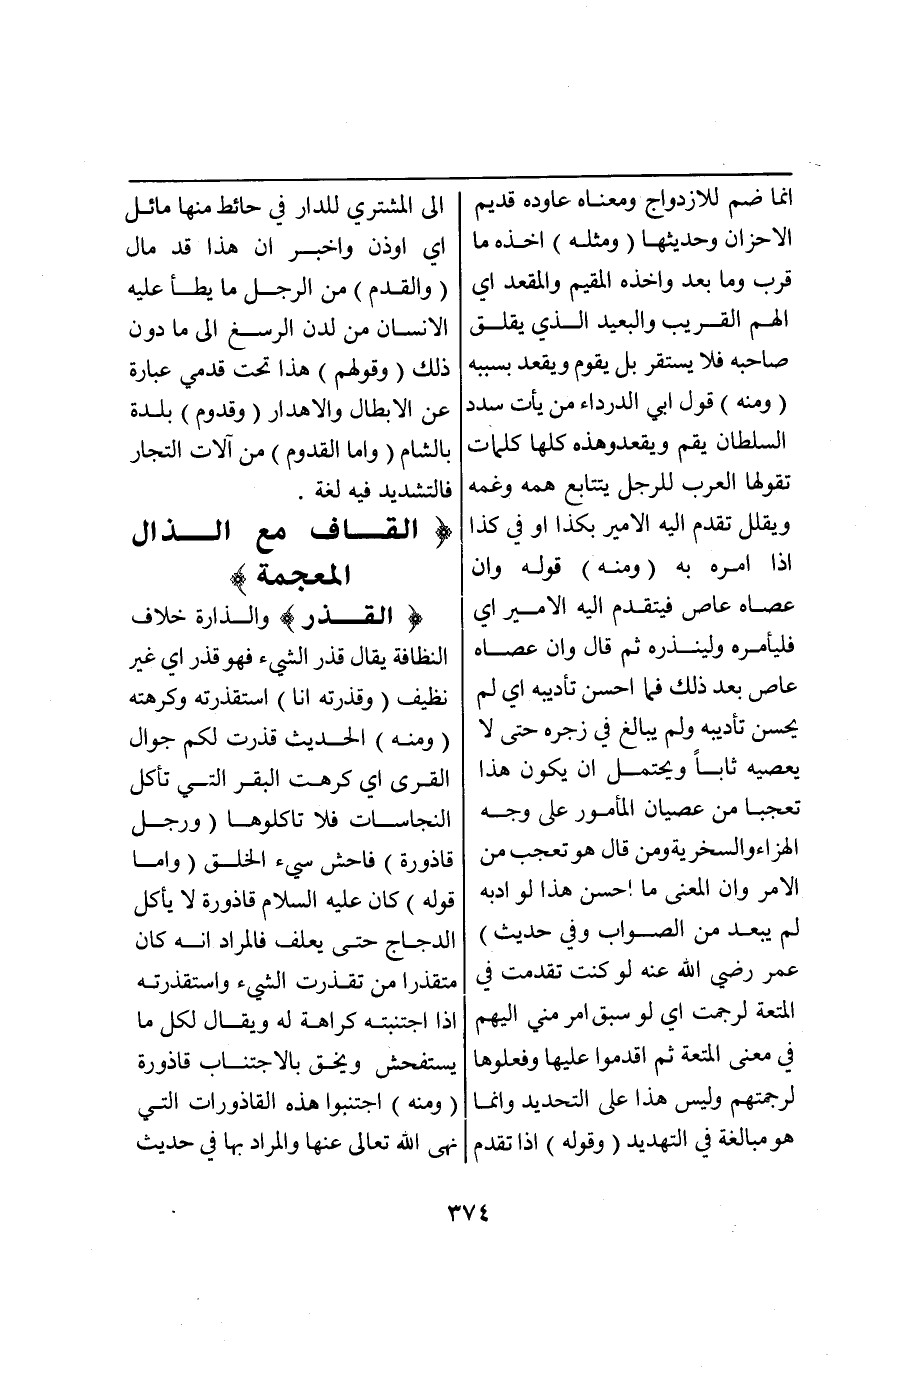 انما ضم للازدواج ومعناه عاوده قديم
الاحزان وحديثها ( ومثله ) اخذه ما
قرب وما بعد واخذه المقيم والمقعد اي
الهم القريب والبعيد الذي يقلق
صاحبه فلا يستقر بل يقوم ويقعد بسببه
( ومنه ) قول ابي الدرداء من يأت سدد
السلطان يقم ويقعدوهذه كلها كلمات
تقولها العرب للرجل يتتابع همه وغمه
ويقلل تقدم اليه الامير بكذا او في كذا
اذا امره به ( ومنه ) قوله وان
عصاه عاص فيتقدم اليه الامير اي
فليأمره ولينذره ثم قال وان عصاه
عاص بعد ذلك فما احسن تأديبه اي لم
يحسن تأديبه ولم يبالغ في زجره حتى لا
يعصيه ثاباً ويحتمل ان يكون هذا
تعجبا من عصيان المأمور على وجه
الهزاء والسخرية ومن قال هو تعجب من
الامر وان المعنى ما احسن هذا لو ادبه
لم يبعد من الصواب وفي حديث )
عمر رضي الله عنه لو كنت تقدمت في
المتعة لرجمت اي لو سبق امر مني اليهم
في معنى المتعة ثم اقدموا عليها وفعلوها
لرجمتهم وليس هذا على التحديد وانما
هو مبالغة في التهديد ( وقوله ) اذا تقدم
الى المشتري للدار في حائط منها مائل
اي اوذن واخبر ان هذا قد مال
( والقدم ) من الرجل ما يطأ عليه
الانسان من لدن الرسغ الى ما دون
ذلك ( وقولهم ) هذا تحت قدمي عبارة
عن الابطال والاهدار ( وقدوم ) بلدة
بالشام ( واما القدوم ) من آلات النجار
فالتشديد فيه لغة .
﴿ القاف مع الذال
المعجمة ﴾
﴿ القذر ﴾ والذارة خلاف
النظافة يقال قذر الشيء فهو قذر اي غير
نظيف ( وقذرته انا ) استقذرته وكرهته
( ومنه ) الحديث قذرت لكم جوال
القرى اي كرهت البقر التي تأكل
النجاسات فلا تاكلوها ( ورجل
قاذورة ) فاحش سيء الخلق ( واما
قوله ) كان عليه السلام قاذورة لا يأكل
الدجاج حتى يعلف فالمراد انه كان
متقذرا من تقذرت الشيء واستقذرته
اذا اجتنبته كراهة له ويقال لكل ما
يستفحش ويحق بالاجتناب قاذورة
( ومنه ) اجتنبوا هذه القاذورات التي
نهى الله تعالى عنها والمراد بها في حديث
٣٧٤